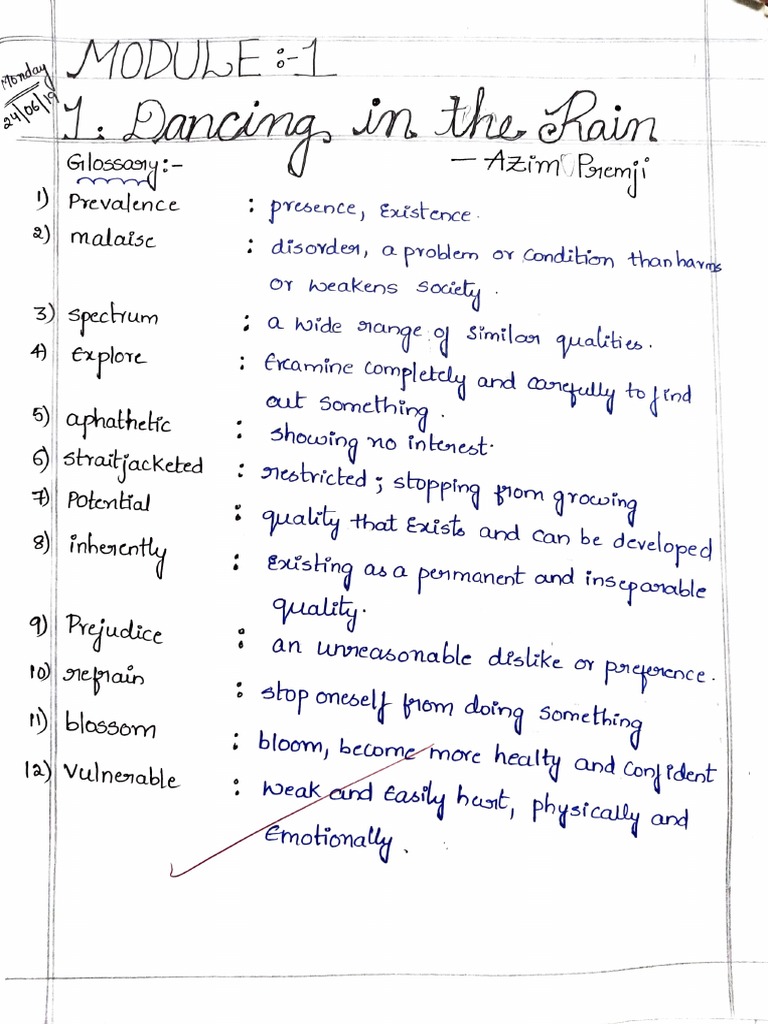 Monday
24/06/19
MODULE:-1
1. Dancing in the Rain
Glossary:-
— Azim Premji
1) Prevalence : presence, Existence.
2) malaise : disorder, a problem or condition than harms
or weakens society.
3) spectrum : a wide range of similar qualities.
4) Explore : Examine completely and carefully to find
out something.
5) aphathetic : showing no interest.
6) straitjacketed : restricted; stopping from growing
7) Potential : quality that Exists and can be developed
8) inherently : Existing as a permanent and inseparable
quality.
9) Prejudice : an unreasonable dislike or preference.
10) refrain : stop oneself from doing something
11) blossom : bloom, become more healty and confident
12) Vulnerable : weak and Easily hurt, physically and
Emotionally.